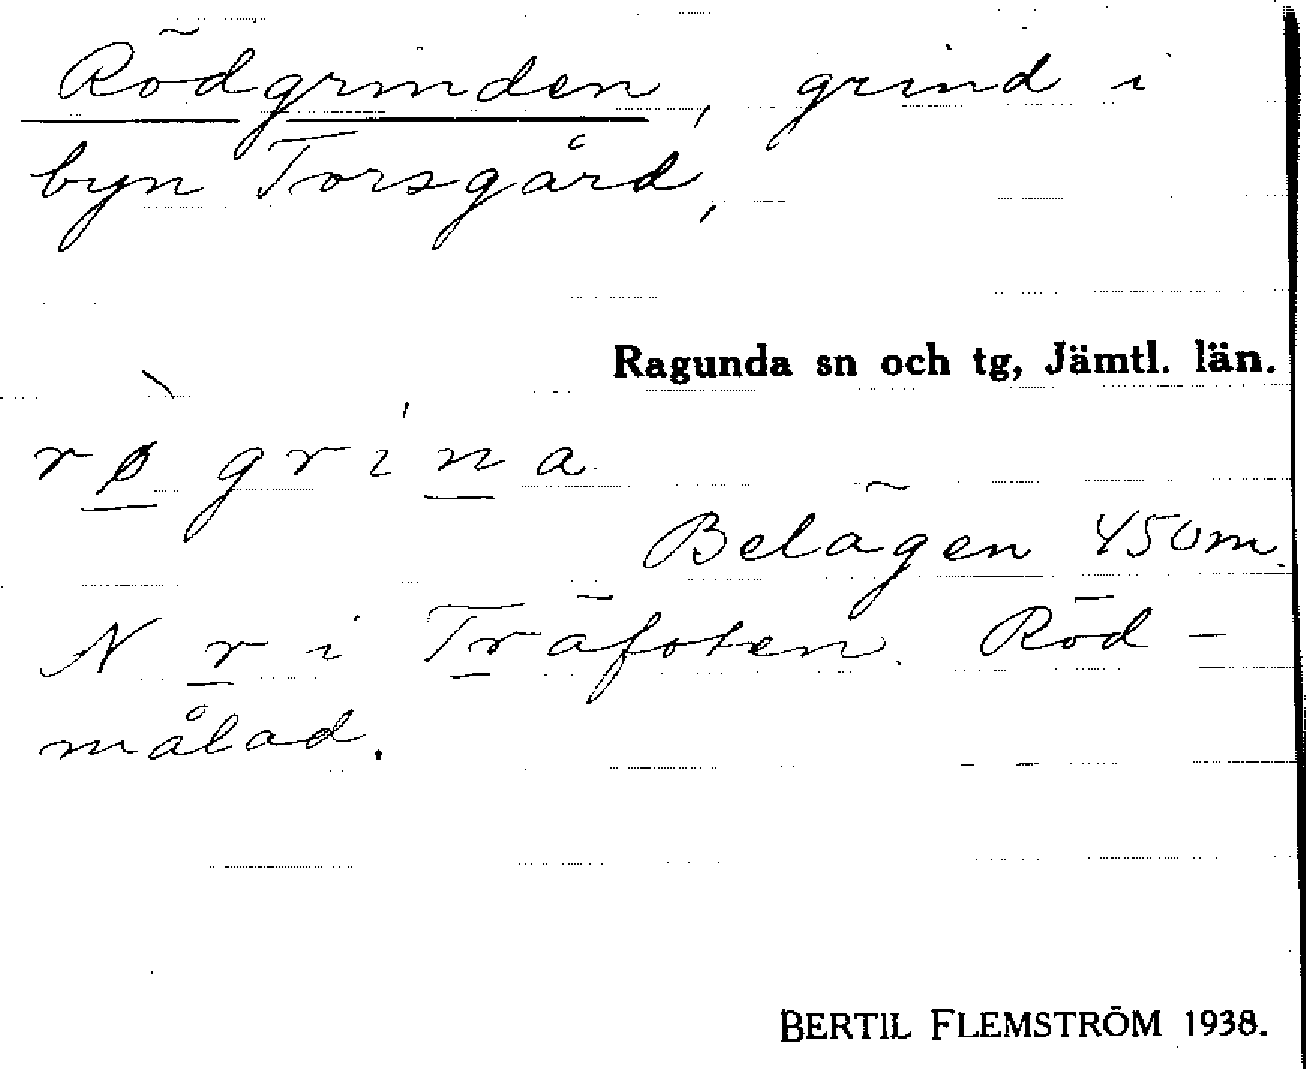 Rödgrinden, grind i
byn Torsgård,
Ragunda sn och tg, Jämtl. län.
rø̀grína
Belägen 450m
N r i Träfoten. Röd-
målad.
BERTIL FLEMSTRÖM 1938.